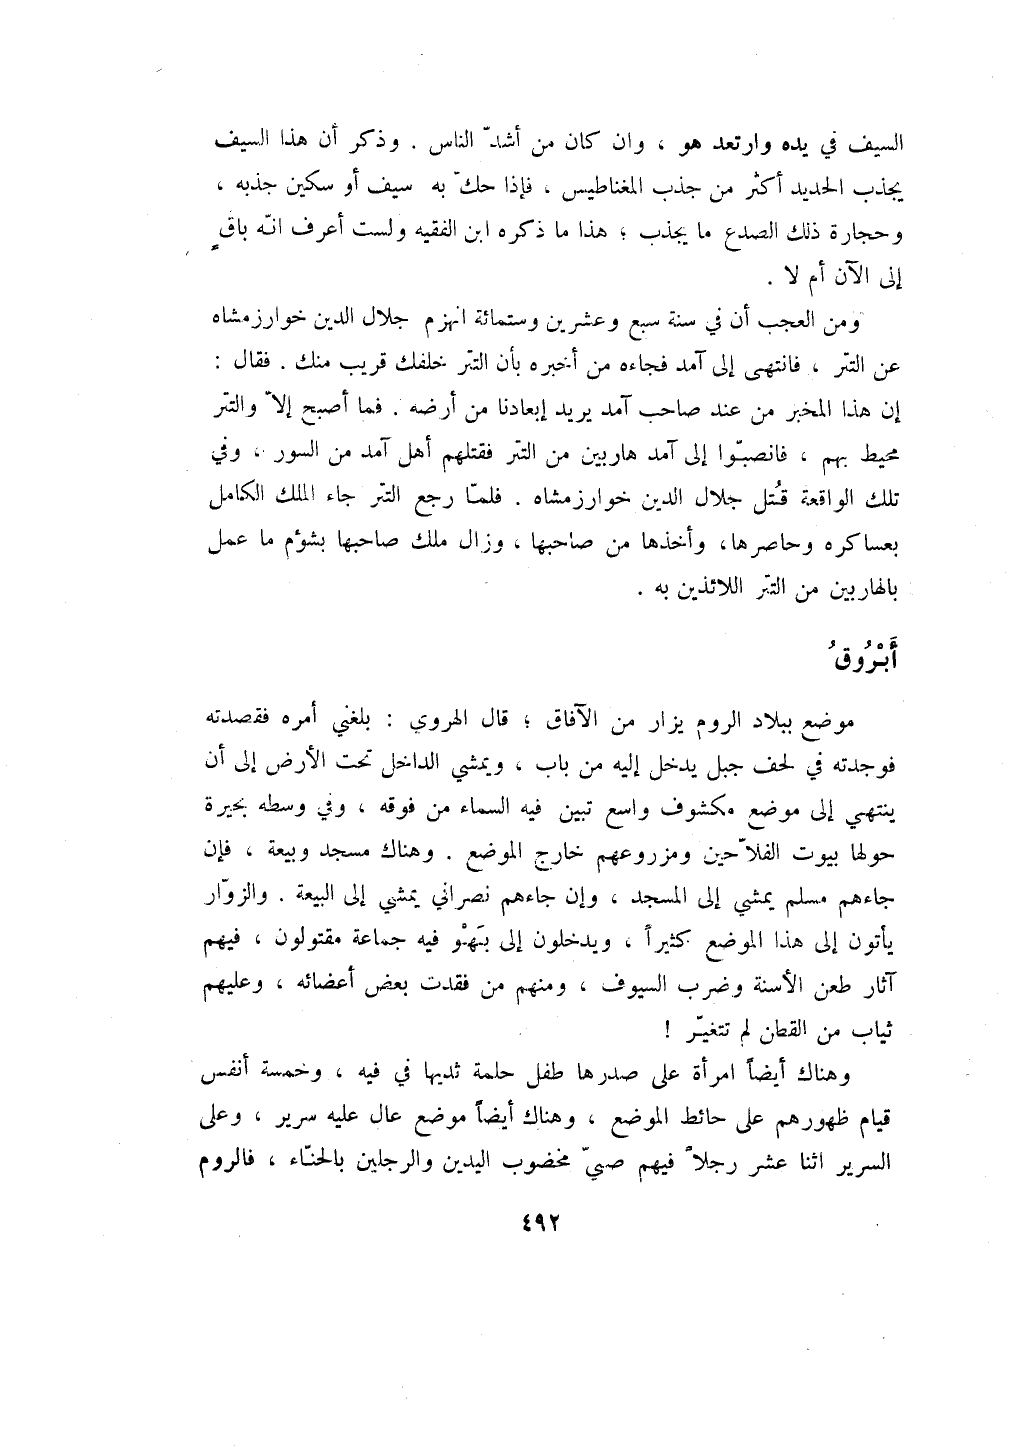 السيف في يده وارتعد هو ، وان كان من أشدّ الناس . وذكر أن هذا السيف
يجذب الحديد أكثر من جذب المغناطيس ، فإذا حكّ به سيف أو سكين جذبه ،
وحجارة ذلك الصدع ما يجذب ؛ هذا ما ذكره ابن الفقيه ولست أعرف انّه باقٍ
إلى الآن أم لا .
ومن العجب أن في سنة سبع وعشرين وستمائة انهزم جلال الدين خوارزمشاه
عن التتر ، فانتهى إلى آمد فجاءه من أخبره بأن التتر خلفك قريب منك . فقال :
إن هذا المخبر من عند صاحب آمد يريد إبعادنا من أرضه . فما أصبح إلاّ والتتر
محيط بهم ، فانصبّوا إلى آمد هاربين من التتر فقتلهم أهل آمد من السور ، وفي
تلك الواقعة قُتل جلال الدين خوارزمشاه . فلمّا رجع التتر جاء الملك الكامل
بعساكره وحاصرها، وأخذها من صاحبها ، وزال ملك صاحبها بشؤم ما عمل
بالهاربين من التتر اللائذين به .
أَبْرُوقُ
موضع ببلاد الروم يزار من الآفاق ؛ قال الهروي : بلغني أمره فقصدته
فوجدته في لحف جبل يدخل إليه من باب ، ويمشي الداخل تحت الأرض إلى أن
ينتهي إلى موضع مكشوف واسع تبين فيه السماء من فوقه ، وفي وسطه بحيرة
حولها بيوت الفلاّحين ومزروعهم خارج الموضع . وهناك مسجد وبيعة ، فإن
جاءهم مسلم يمشي إلى المسجد ، وإن جاءهم نصراني يمشي إلى البيعة . والزوّار
يأتون إلى هذا الموضع كثيراً ، ويدخلون إلى بَهْو فيه جماعة مقتولون ، فيهم
آثار طعن الأسنة وضرب السيوف ، ومنهم من فقدت بعض أعضائه ، وعليهم
ثياب من القطن لم تتغيّر !
وهناك أيضاً امرأة على صدرها طفل حلمة ثديها في فيه ، وخمسة أنفس
قيام ظهورهم على حائط الموضع ، وهناك أيضاً موضع عال عليه سرير ، وعلى
السرير اثنا عشر رجلاً فيهم صبيّ مخضوب اليدين والرجلين بالحنّاء ، فالروم
٤٩٢